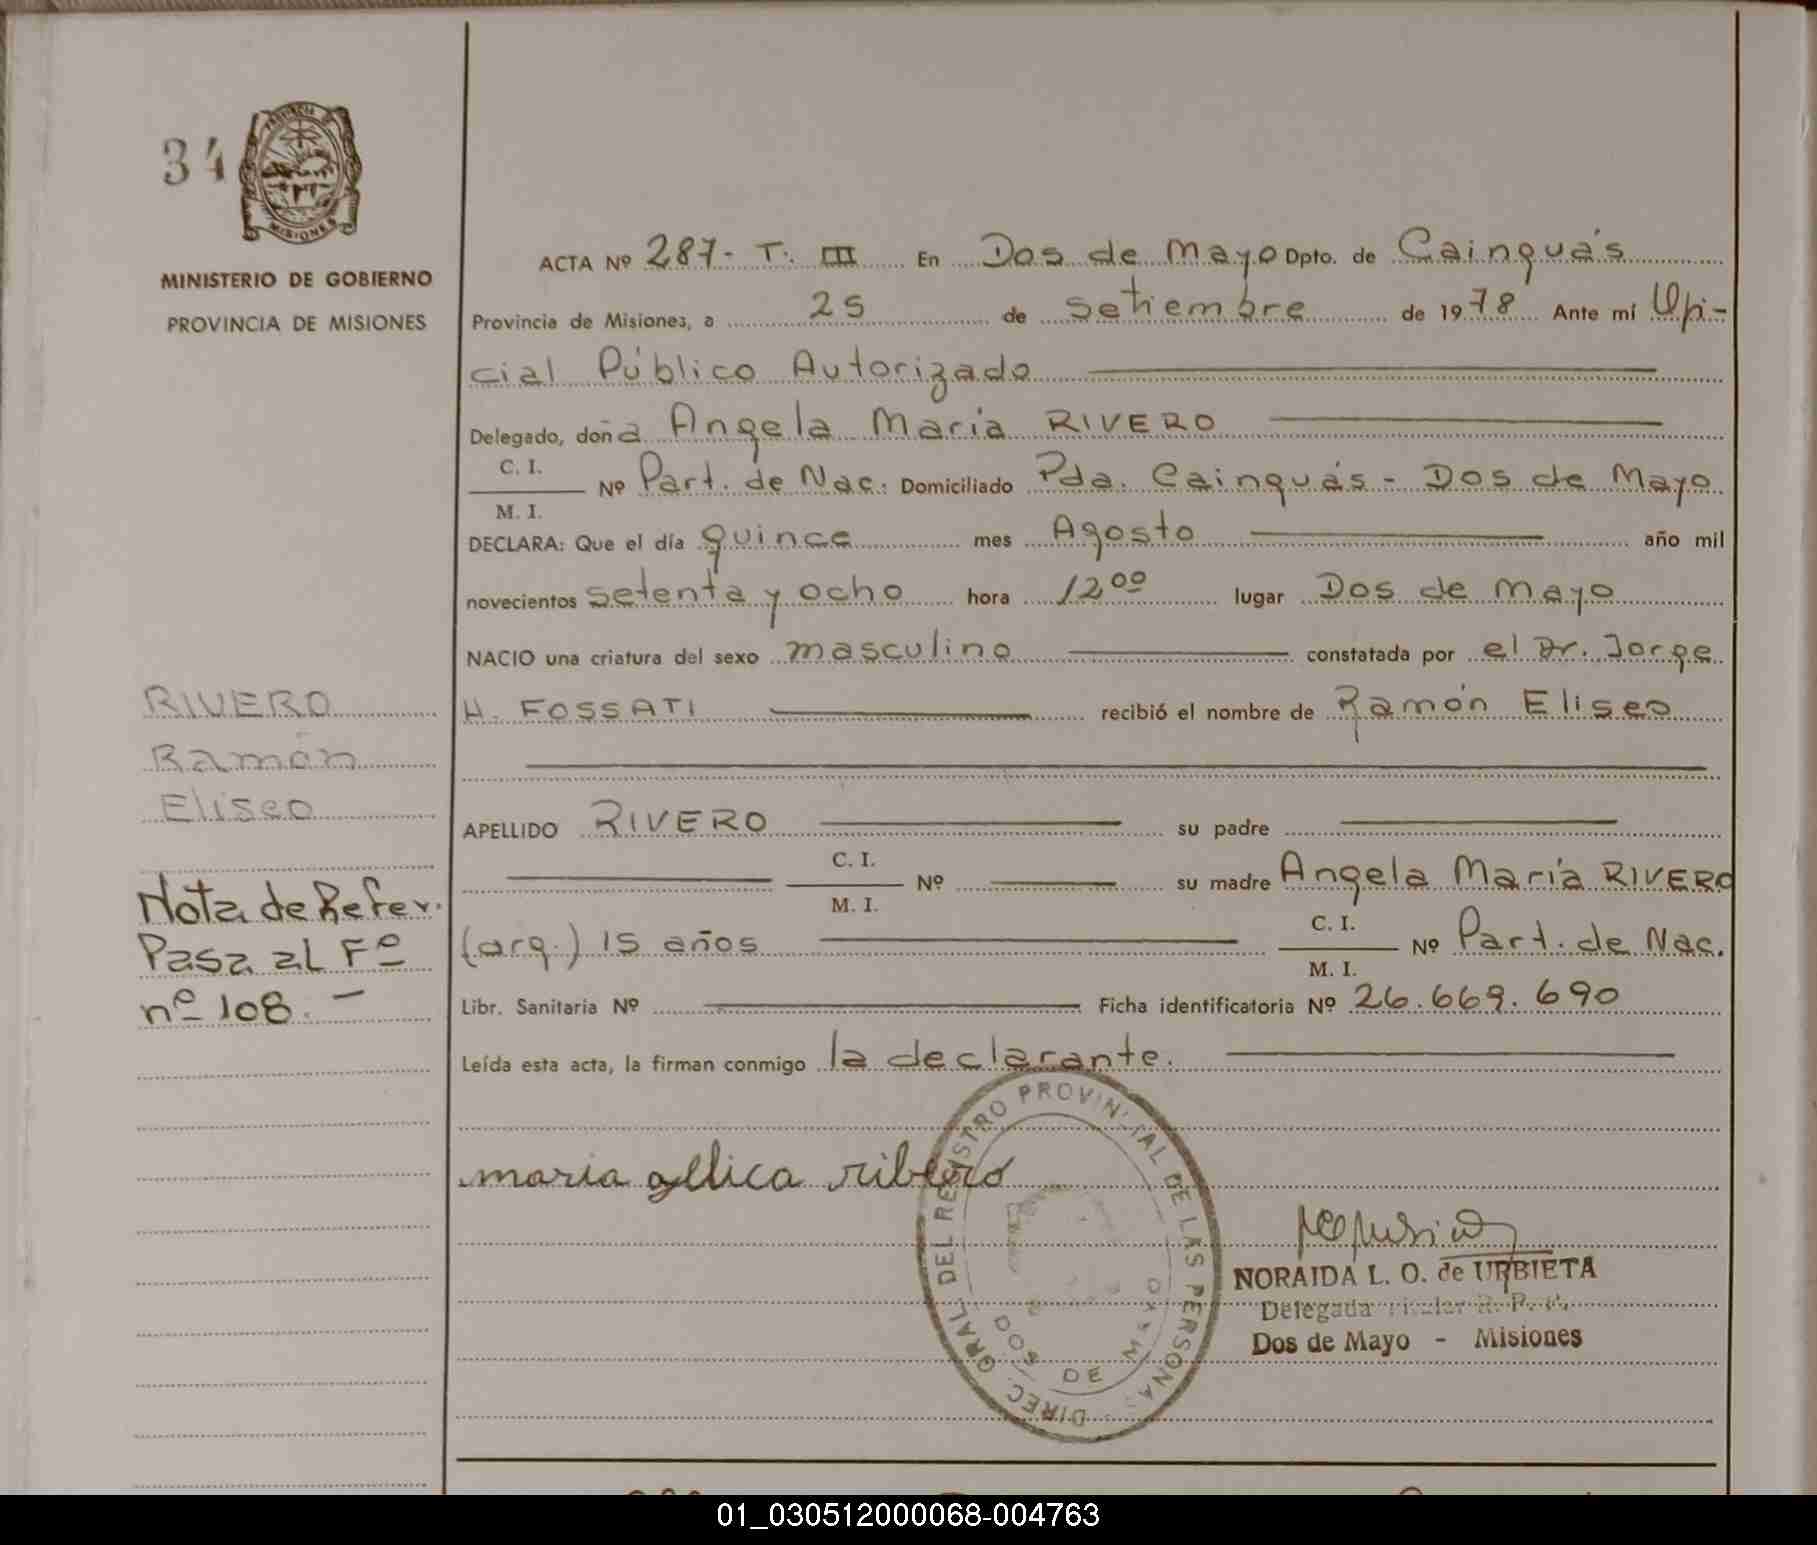 34
PROVINCIA DE
MISIONES
MINISTERIO DE GOBIERNO
PROVINCIA DE MISIONES
RIVERO
Ramón
Eliseo
Nota de Refer.
Pasa al Fº
nº 108. -
ACTA Nº 287- T. III En Dos de Mayo Dpto. de Cainguás
Provincia de Misiones, a 25 de Setiembre de 1978 Ante mí Ofi-
cial Público Autorizado
Delegado, doña Angela Maria RIVERO
C. I.
Nº Part. de Nac. Domiciliado Pda. Cainguás - Dos de Mayo
M. I.
DECLARA: Que el día quince mes Agosto año mil
novecientos setenta y ocho hora 12⁰⁰ lugar Dos de Mayo
NACIO una criatura del sexo masculino constatada por el Dr. Jorge
H. FOSSATI recibió el nombre de Ramón Eliseo
APELLIDO RIVERO su padre
C. I.
Nº su madre Angela María RIVERO
M. I.
(arg.) 15 años C. I. Nº Part. de Nac.
M. I.
Libr. Sanitaria Nº Ficha identificatoria Nº 26.669.690
Leída esta acta, la firman conmigo la declarante.
maria ribero
DIREC. GRAL. DEL REGISTRO PROVINCIAL DE LAS PERSONAS
DOS DE MAYO
NORAIDA L. O. de URBIETA
Delegada R. P. P.
Dos de Mayo - Misiones
01_030512000068-004763